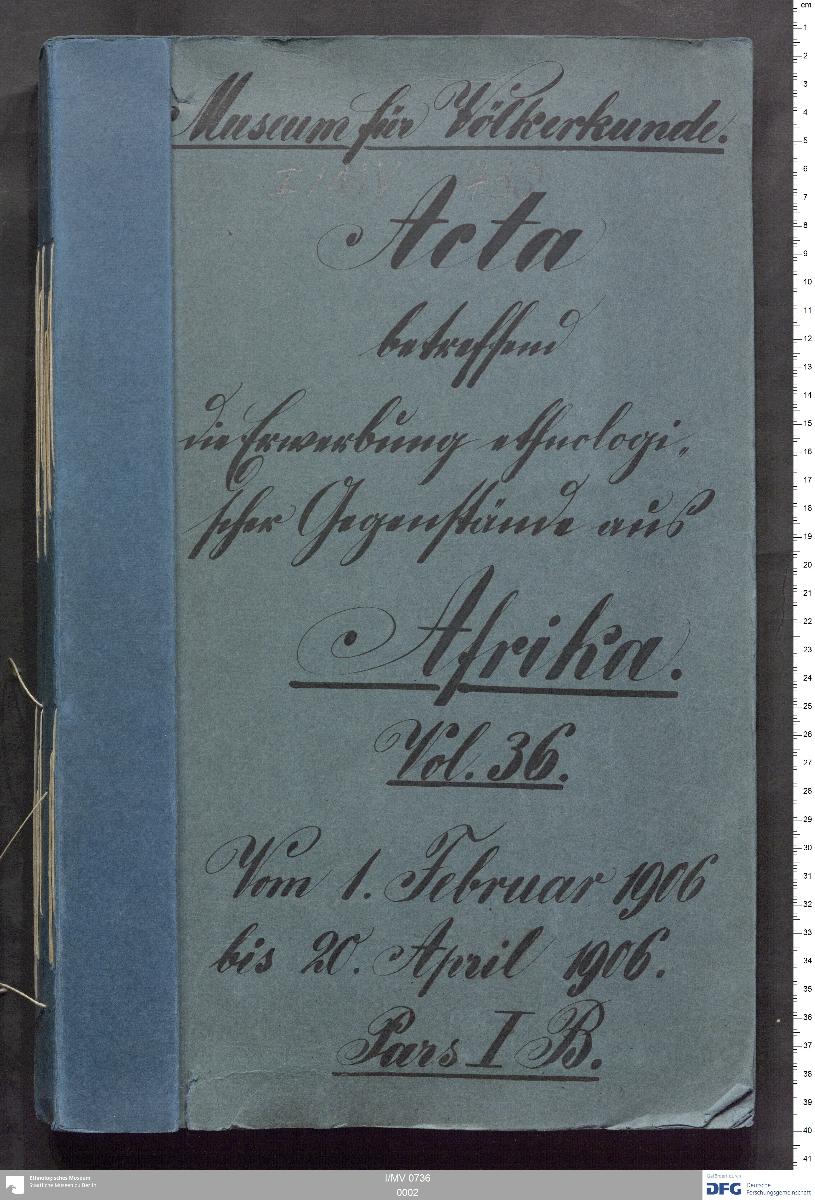 Museum für Völkerkunde.
I/MV 736
Acta
betreffend
die Erwerbung ethnologi-
scher Gegenstände aus
Afrika.
Vol. 36.
Vom 1. Februar 1906
bis 20. April 1906.
Pars I B.
cm
1
2
3
4
5
6
7
8
9
10
11
12
13
14
15
16
17
18
19
20
21
22
23
24
25
26
27
28
29
30
31
32
33
34
35
36
37
38
39
40
41
Ethnologisches Museum
Staatliche Museen zu Berlin
I/MV 0736
0002
Gefördert durch
DFG Deutsche
Forschungsgemeinschaft